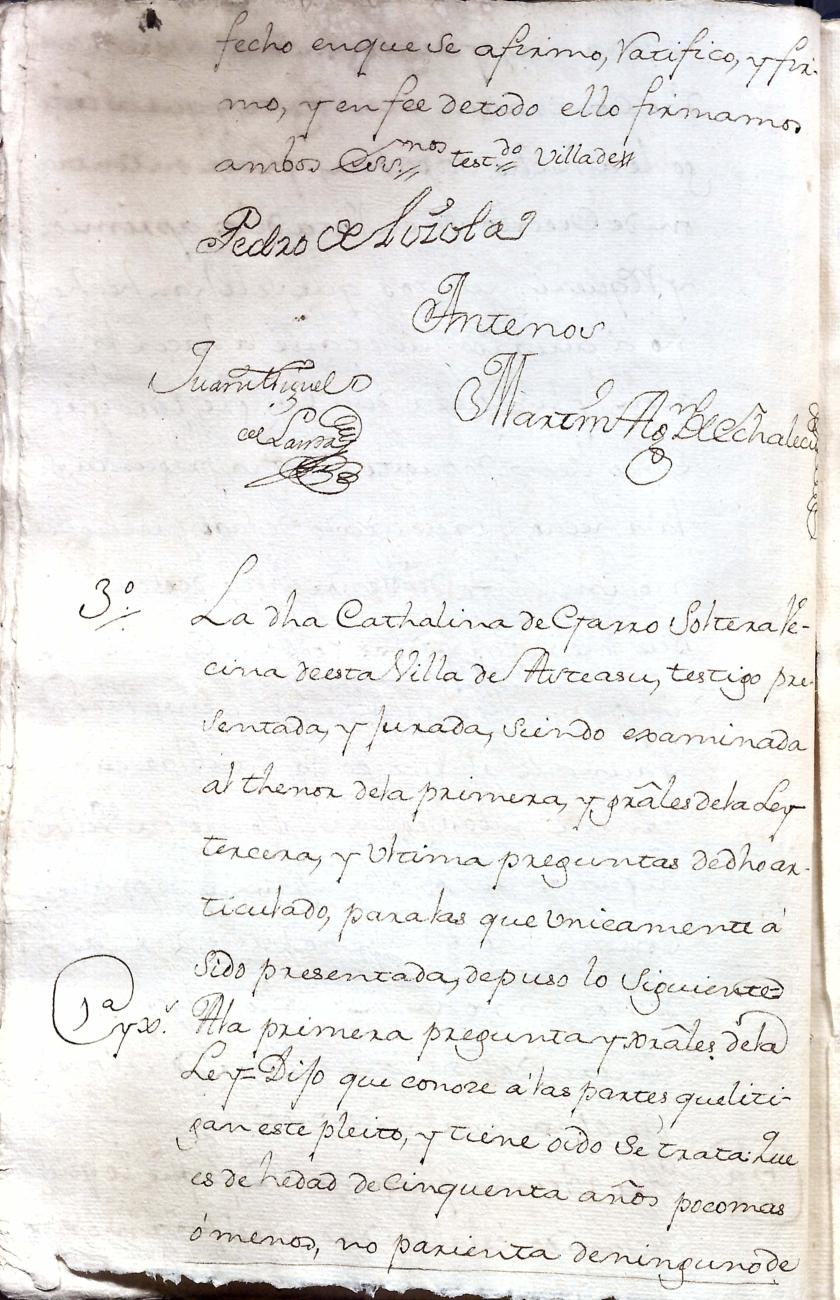 fecho enque se afirmo, Ratifico, y fir-
mo, y en fee de todo ello firmamos
ambos Essnos testdo Villades
Pedro de Luzola
Antenos
Juan Miguel
de Landa
Martin Agn de Echalecu
3º
La dha Cathalina de Garro Soltera Ve-
cina deesta Villa de Asteasu, testigo pre-
sentada, y Jurada, siendo examinada
al thenor dela primera, y grãles dela Ley
tercera, y Ultima preguntas de dho ar-
ticulado, paralas que Unicamente á
sido presentada, depuso lo siguiente=
1ª
Ala primera pregunta y grãles dela
Ley= Dijo que conoze á las partes queliti-
gan este pleito, y tiene oido se trata: Que
es de hedad de Cinquenta años pocomas
ómenos, no parienta deningunode